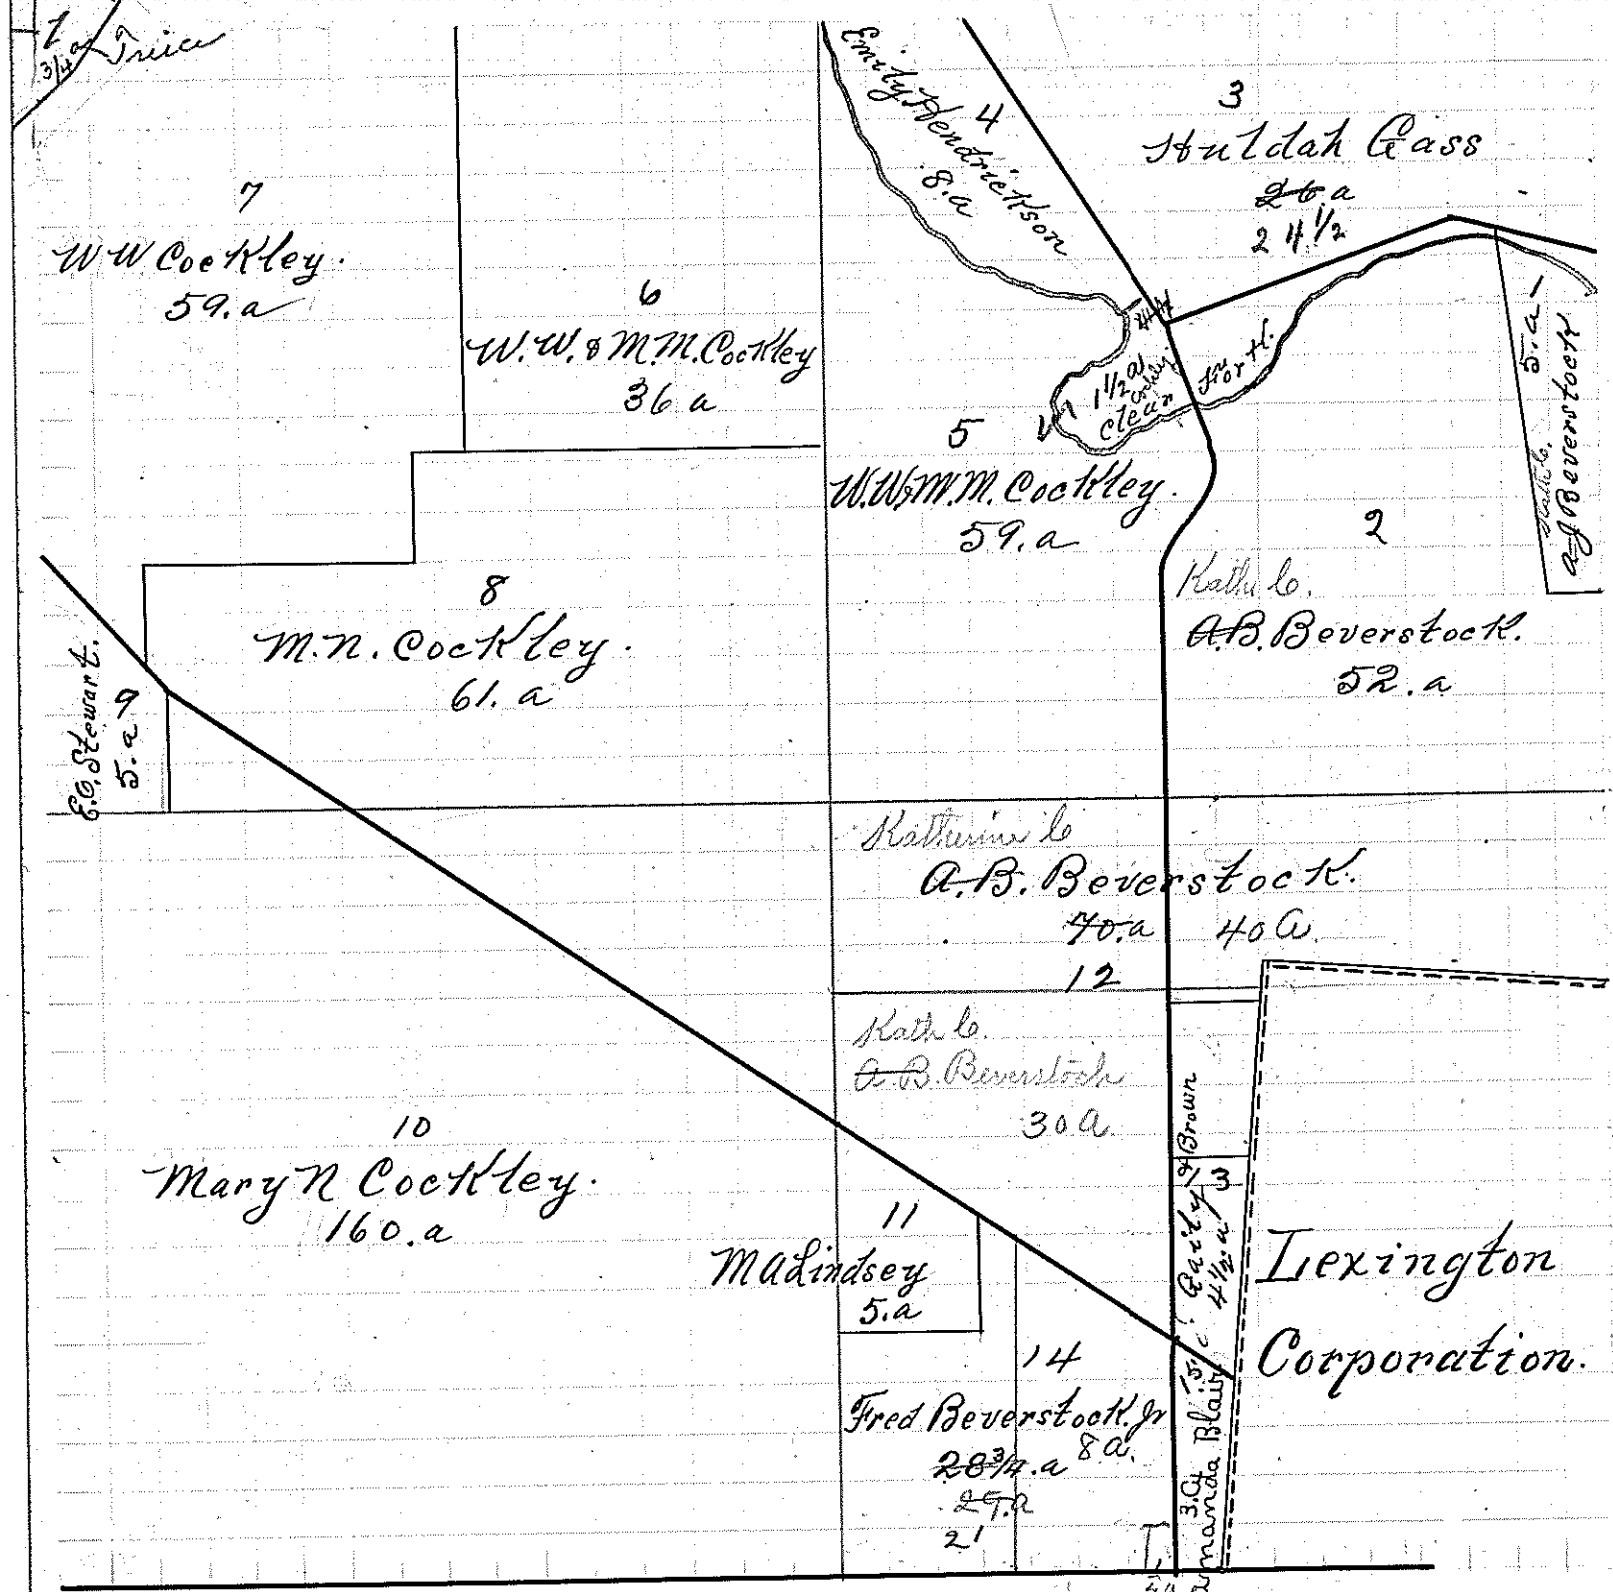 1
3/4 a
Trice
7
W W Cockley.
59.a
6
W.W. & M.M. Cockley
36 a
Emily Hendrickson
4
8.a
3
Huldah Gass
26.a
24 1/2
1 1/2 a
Cockley
Clear Fork.
5
W.W. & M.M. Cockley.
59.a
1
5.a
Kath C.
A B Beverstock
2
Kath C.
A.B. Beverstock.
52.a
8
M.N. Cockley.
61.a
E.O. Stewart.
9
5.a
Katherine C
A.B. Beverstock.
70.a 40 a.
12
Kath C.
A.B. Beverstock
30 a.
10
Mary N Cockley.
160.a
11
M A Lindsey
5.a
Gaily & Brown
13
4 1/2.a
Lexington
Corporation.
14
Fred Beverstock. Jr
28 3/4.a 8 a.
29.a
21
15
3.a
Amanda Blair